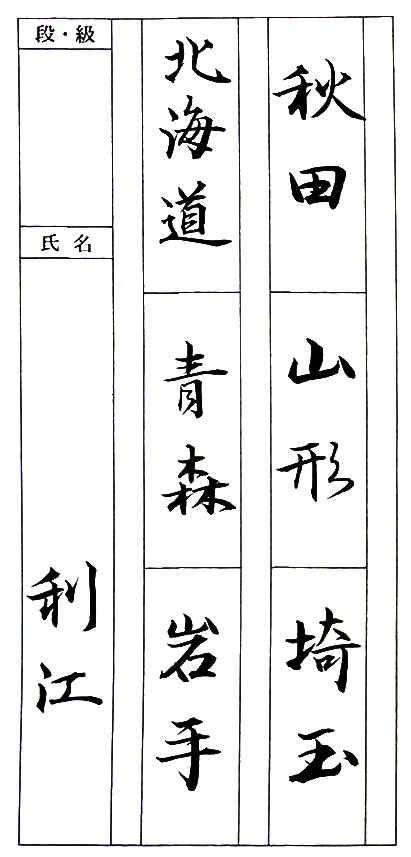 秋田 山形 埼玉
北海道 青森 岩手
段・級
氏名
利江